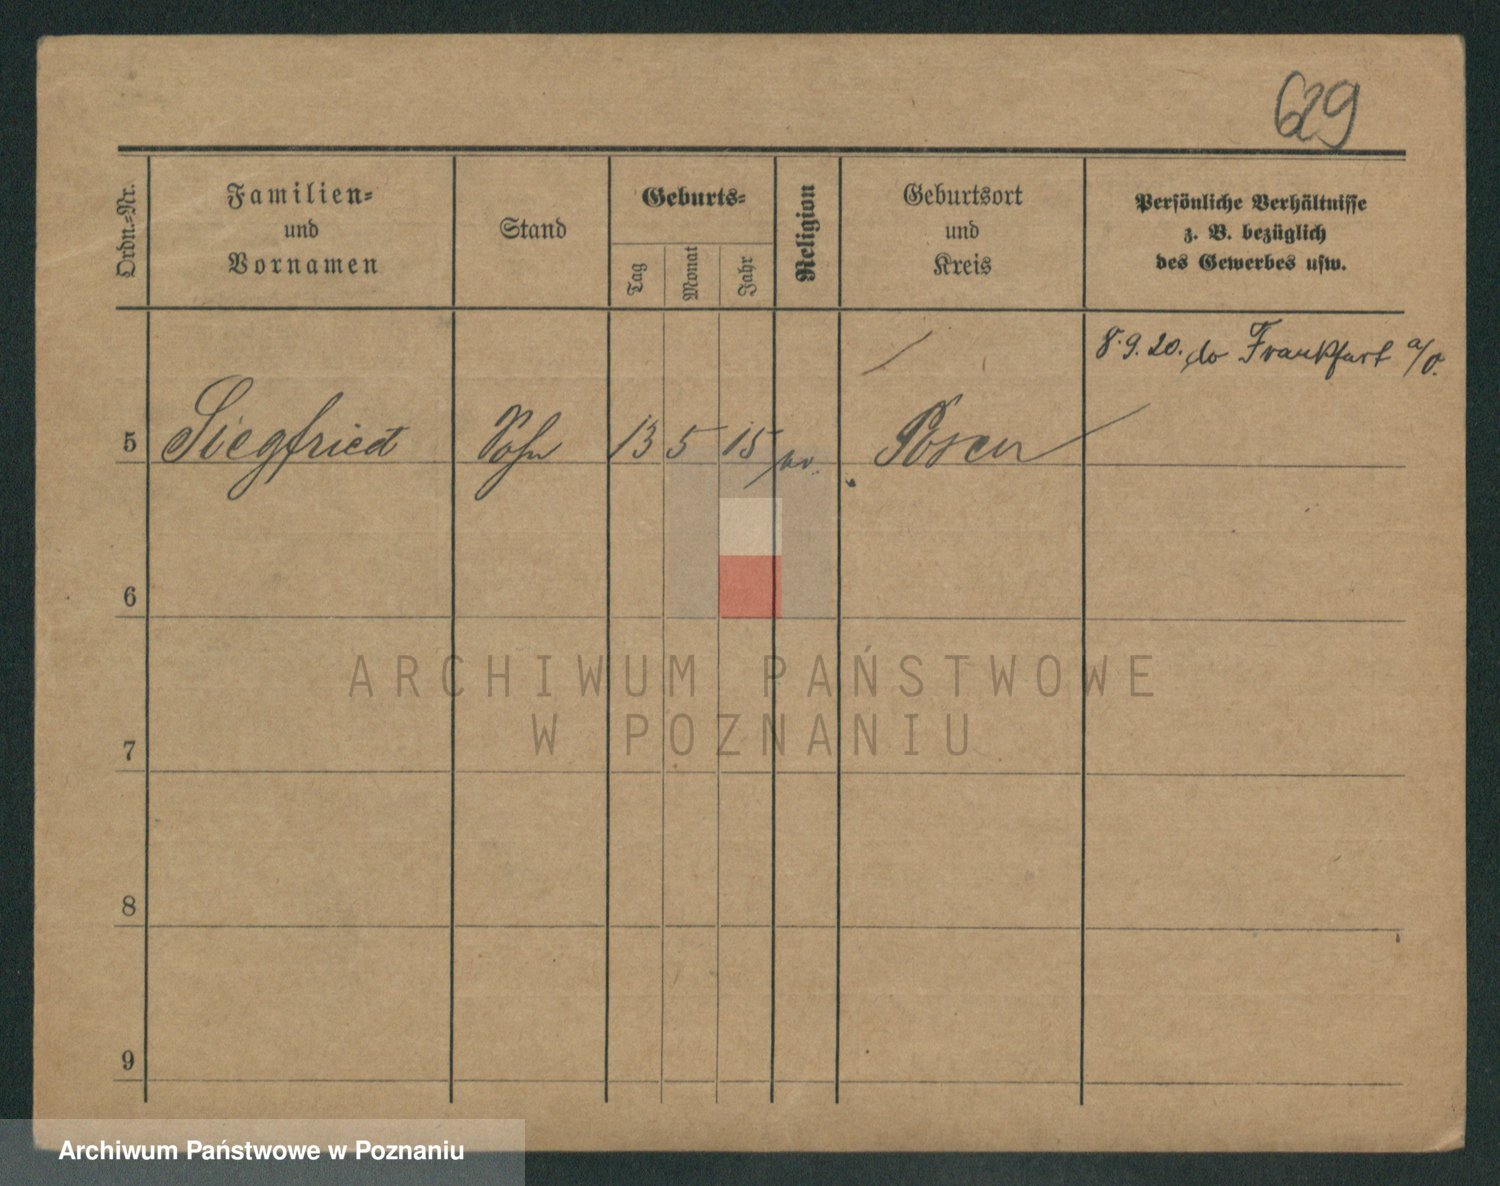 629
Ordn.=Nr.
Familien=
und
Vornamen
Stand
Geburts=
Tag
Monat
Jahr
Religion
Geburtsort
und
Kreis
Persönliche Verhältnisse
z. B. bezüglich
des Gewerbes usw.
8.9.20. do Frankfurt a/O.
5 Siegfried Sohn 13 5 15 Posen
6
7
8
9
ARCHIWUM PAŃSTWOWE
W POZNANIU
Archiwum Państwowe w Poznaniu